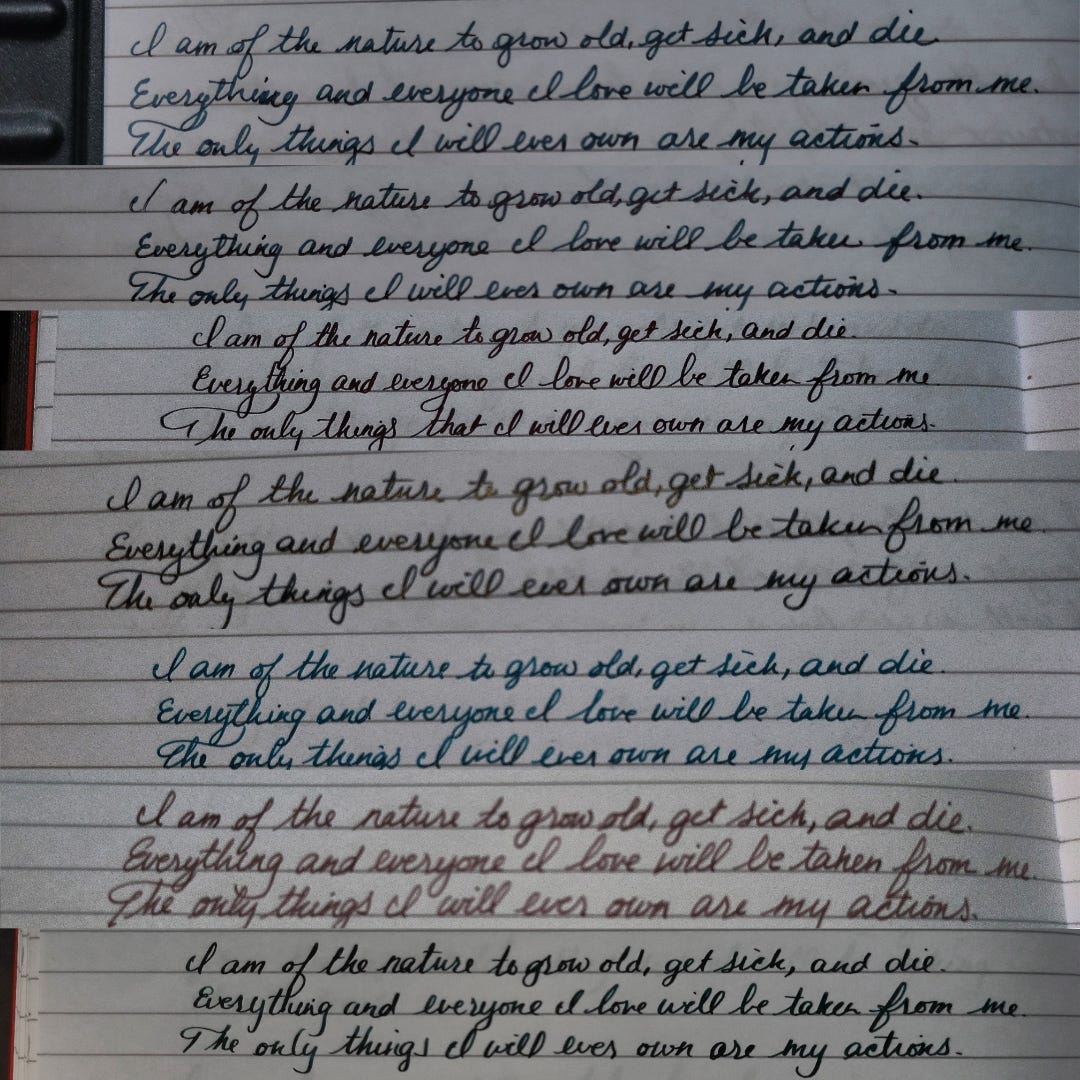 I am of the nature to grow old, get sick, and die.
Everything and everyone I love will be taken from me.
The only things I will ever own are my actions.
I am of the nature to grow old, get sick, and die.
Everything and everyone I love will be taken from me.
The only things I will ever own are my actions.
I am of the nature to grow old, get sick, and die.
Everything and everyone I love will be taken from me
The only things that I will ever own are my actions.
I am of the nature to grow old, get sick, and die.
Everything and everyone I love will be taken from me.
The only things I will ever own are my actions.
I am of the nature to grow old, get sick, and die.
Everything and everyone I love will be taken from me.
The only things I will ever own are my actions.
I am of the nature to grow old, get sick, and die.
Everything and everyone I love will be taken from me.
The only things I will ever own are my actions.
I am of the nature to grow old, get sick, and die.
Everything and everyone I love will be taken from me.
The only things I will ever own are my actions.